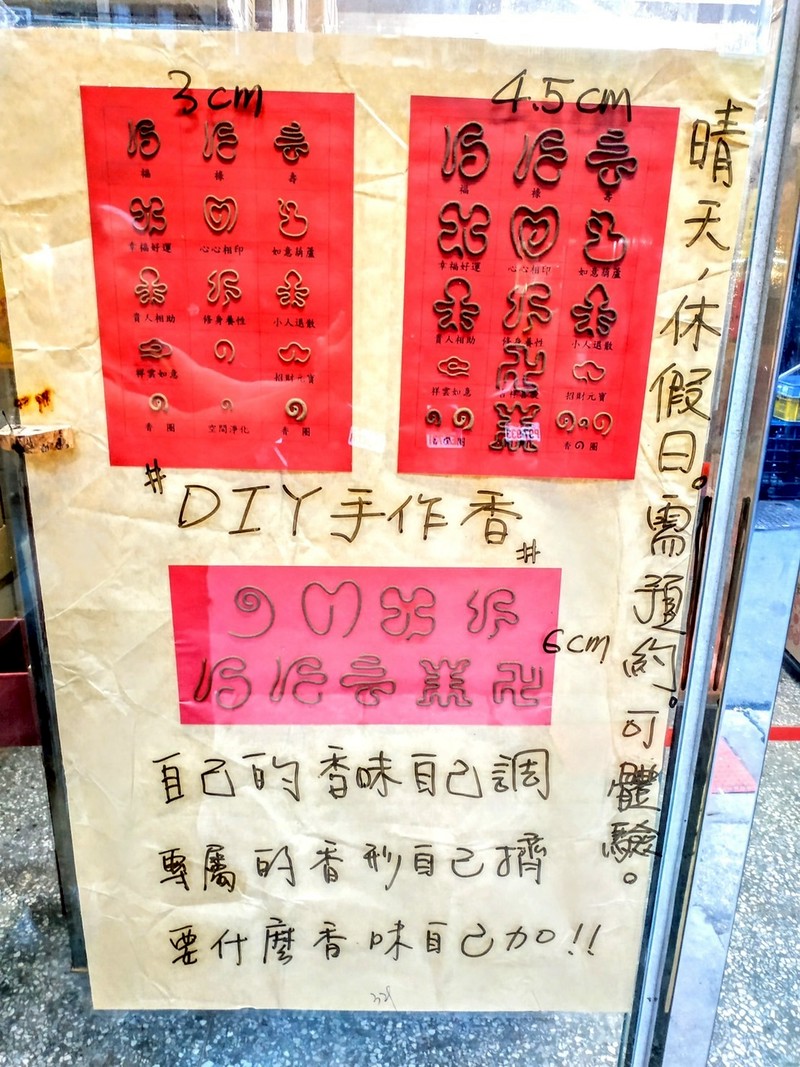 3cm
福 祿 壽
幸福好運 心心相印 如意葫蘆
貴人相助 修身養性 小人退散
祥雲如意 招財元寶
香圈 空間淨化 香圈
4.5cm
福 祿 壽
幸福好運 心心相印 如意葫蘆
貴人相助 修身養性 小人退散
祥雲如意 招財元寶
香の圈
#DIY手作香#
6cm
自己的香味自己調
專屬的香形自己擠
要什麼香味自己加!!
晴天,休假日。需預約。可體驗。